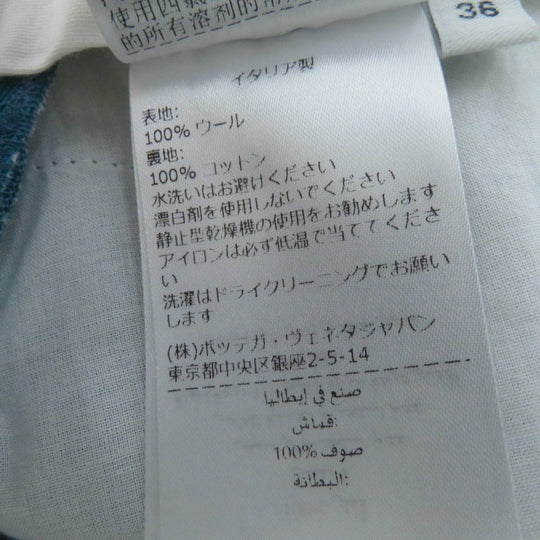 的所有溶剂的常
36
イタリア製
表地:
100% ウール
裏地:
100% コットン
水洗いはお避けください
漂白剤を使用しないでください
静止型乾燥機の使用をお勧めします
アイロンは必ず低温で当ててくださ
い
洗濯はドライクリーニングでお願い
します
(株)ボッテガ・ヴェネタジャパン
東京都中央区銀座2-5-14
صنع في إيطاليا
قماش:
100% صوف
البطانة: